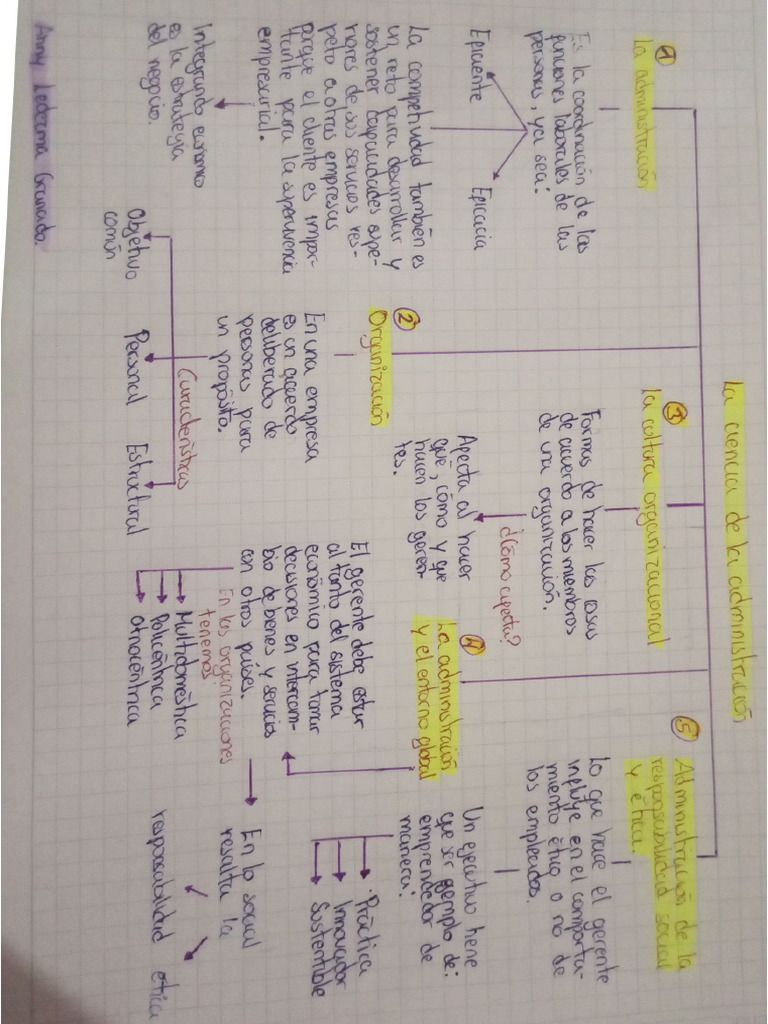 La ciencia de la administración
①
La administración
Es la coordinación de las
funciones laborales de las
personas, ya sea:
Eficiente
Eficacia
La competividad también es
un reto para desarrollar y
sostener capacidades supe-
riores de sus servicios res-
peto a otras empresas
porque el cliente es impor-
tante para la supervivencia
empresarial.
Integrando entorno
es la estrategia
del negocio.
②
Organización
En una empresa
es un acuerdo
deliberado de
personas para
un propósito.
Características
Objetivo
común
Personal
Estructural
③
La cultura organizacional
Formas de hacer las cosas
de acuerdo a los miembros
de una organización.
¿Cómo afecta?
Afecta al hacer
que, cómo y que
hacen los geren-
tes.
④
La administración
y el entorno global
El gerente debe estar
al tanto del sistema
económico para tomar
decisiones en intercam-
bio de bienes y servicios
con otros países.
En las organizaciones
tenemos
Multidoméstica
Policéntrica
Etnocéntrica
⑤
Administración de la
responsabilidad social
y ética.
Lo que hace el gerente
influye en el comporta-
miento ético o no de
los empleados.
Un ejecutivo tiene
que ser ejemplo de:
emprendedor de
manera:
· Práctica
Innovador
Sustentible
En lo social
resalta la
responsabilidad
ética
Anny Ledezma Granado.